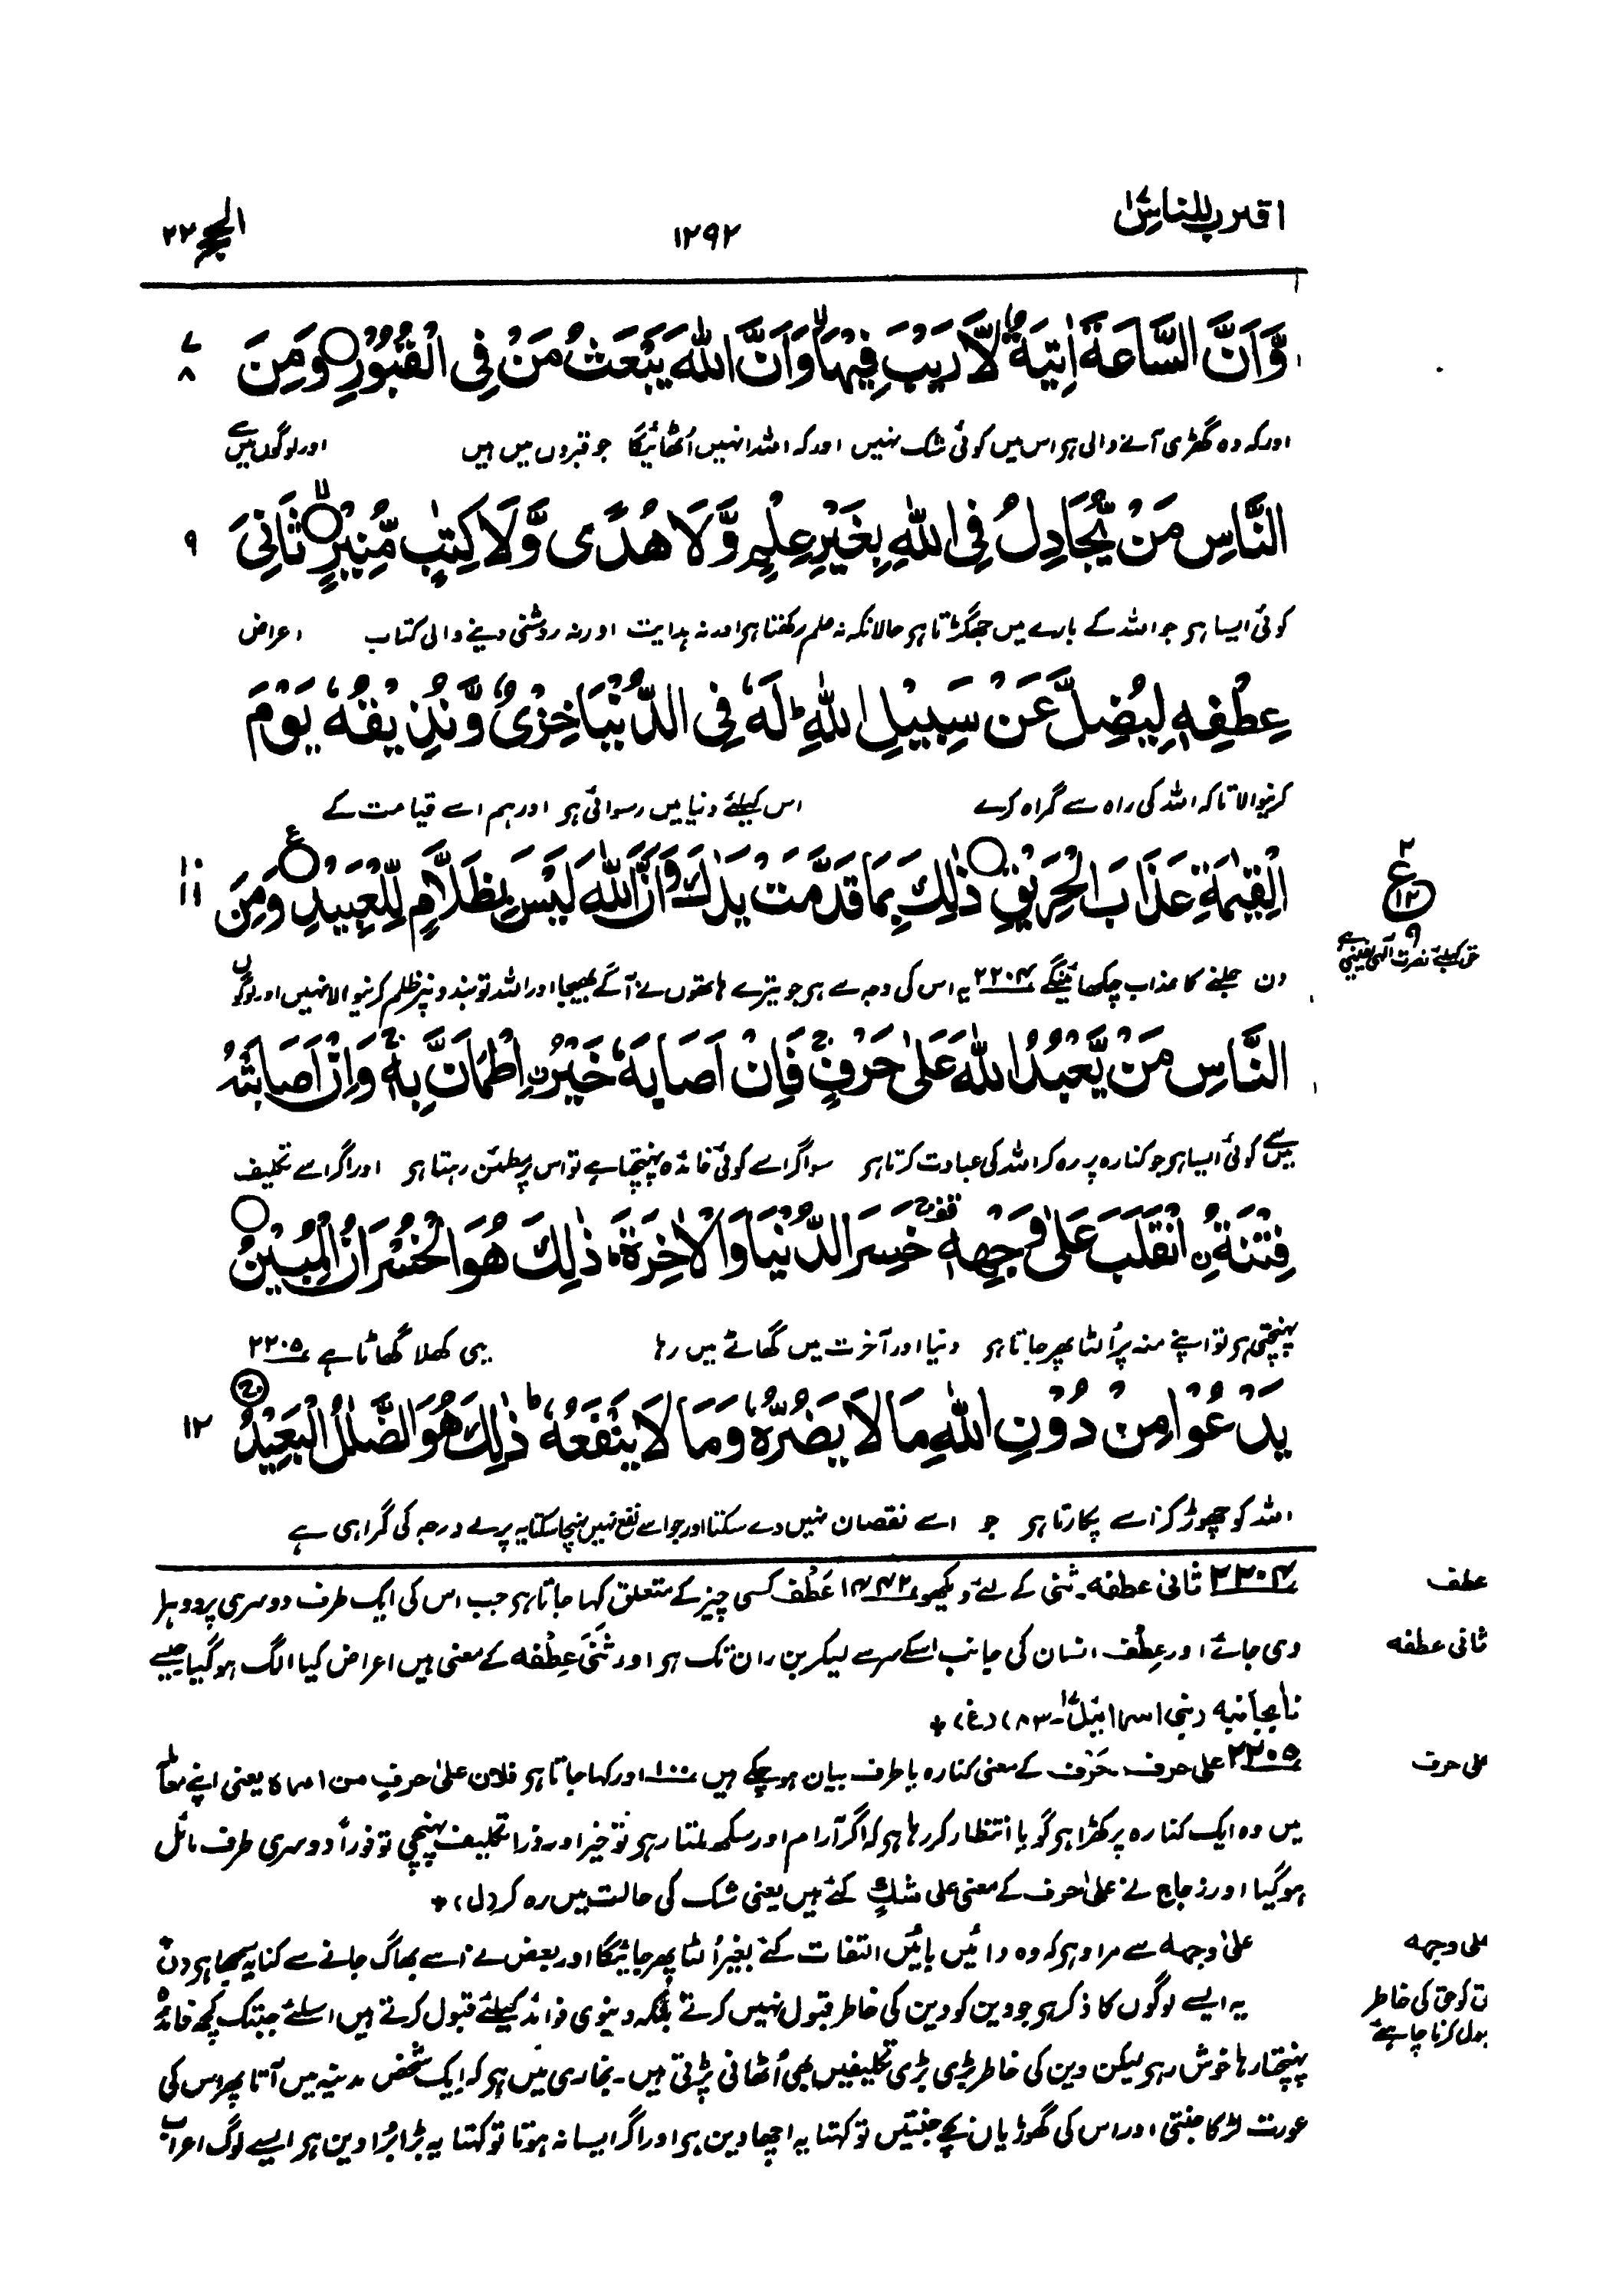 اقترب للناس ۱۷
۱۲۹۲
الحج ۲۲
وَّاَنَّ السَّاعَةَ اٰتِيَةٌ لَّا رَيْبَ فِيْهَا وَاَنَّ اللّٰهَ يَبْعَثُ مَنْ فِى الْقُبُوْرِ ○ وَمِنَ
۷
۸
اور کہ وہ گھڑی آنے والی ہے اس میں کوئی شک نہیں اور کہ اللہ انہیں اُٹھائیگا جو قبروں میں ہیں اور لوگوں میں سے
النَّاسِ مَنْ يُّجَادِلُ فِى اللّٰهِ بِغَيْرِ عِلْمٍ وَّلَا هُدًى وَّلَا كِتٰبٍ مُّنِيْرٍ ○ ثَانِىَ
۹
کوئی ایسا ہے جو اللہ کے بارے میں جھگڑتا ہے حالانکہ نہ علم رکھتا ہے اور نہ ہدایت اور نہ روشنی دینے والی کتاب اعراض
عِطْفِهٖ لِيُضِلَّ عَنْ سَبِيْلِ اللّٰهِ ؕ لَهٗ فِى الدُّنْيَا خِزْىٌ وَّنُذِيْقُهٗ يَوْمَ
کرنیوالا تاکہ اللہ کی راہ سے گمراہ کرے اس کیلئے دنیا میں رسوائی ہے اور ہم اسے قیامت کے
الْقِيٰمَةِ عَذَابَ الْحَرِيْقِ ○ ذٰلِكَ بِمَا قَدَّمَتْ يَدٰكَ وَاَنَّ اللّٰهَ لَيْسَ بِظَلَّامٍ لِّلْعَبِيْدِ ○ وَمِنَ
۱۰
۱۱
۲
ع
۱۲
۹
حق کیلئے نصرت الٰہی یقینی ہے
دن جلنے کا عذاب چکھائینگے ۲۲۰۴ یہ اس کی وجہ سے ہے جو تیرے ہاتھوں نے آگے بھیجا اور اللہ تو بندوں پر ظلم کرنیوالا نہیں اور لوگوں
النَّاسِ مَنْ يَّعْبُدُ اللّٰهَ عَلٰى حَرْفٍ ۚ فَاِنْ اَصَابَهٗ خَيْرُ ۨ اطْمَاَنَّ بِهٖ ۚ وَاِنْ اَصَابَتْهُ
میں سے کوئی ایسا ہے جو کنارہ پر رہ کر اللہ کی عبادت کرتا ہے سو اگر اسے کوئی فائدہ پہنچتا ہے تو اس پر مطمئن رہتا ہے اور اگر اسے تکلیف
فِتْنَةُ ۨ انْقَلَبَ عَلٰى وَجْهِهٖ ۚ خَسِرَ الدُّنْيَا وَالْاٰخِرَةَ ؕ ذٰلِكَ هُوَ الْخُسْرَانُ الْمُبِيْنُ ○
پہنچتی ہے تو اپنے منہ پر اُلٹا پھر جاتا ہے دنیا اور آخرت میں گھاٹے میں رہا یہی کھلا گھاٹا ہے ۲۲۰۵
يَدْعُوْا مِنْ دُوْنِ اللّٰهِ مَا لَا يَضُرُّهٗ وَمَا لَا يَنْفَعُهٗ ؕ ذٰلِكَ هُوَ الضَّلٰلُ الْبَعِيْدُ ۚ
۱۲
اللہ کو چھوڑ کر اسے پکارتا ہے جو اسے نقصان نہیں دے سکتا اور جو اسے نفع نہیں پہنچا سکتا یہ پرلے درجہ کی گمراہی ہے
عطف
۲۲۰۴ ثانی عطفہ۔ ثنی کے لئے دیکھو ۱۴۴۲ عَطْف کسی چیز کے متعلق کہا جاتا ہے جب اس کی ایک طرف دوسری پر دوہرا
ثانی عطفہ
دی جائے اور عِطْف انسان کی جانب اسکے سر سے لیکر بن ران تک ہے اور ثَنٰی عِطْفہ کے معنی ہیں اعراض کیا الگ ہوگیا جیسے
نأبجانبہ (بنی اسرائیل ۱۷۔۸۳) (غ)٭
علی حرف
۲۲۰۵ علی حرف۔ حَرْف کے معنی کنارہ یا طرف بیان ہو چکے ہیں ۱۰۰ اور کہا جاتا ہے فلان علیٰ حرفٍ من امرہ یعنی اپنے معاملہ
میں وہ ایک کنارہ پر کھڑا ہے گویا انتظار کر رہا ہے کہ اگر آرام اور سکھ ملتا رہے تو خیر اور ذرا تکلیف پہنچی تو فوراً دوسری طرف مائل
ہوگیا اور زجاج نے علیٰ حرف کے معنی علی شکٍ کئے ہیں یعنی شک کی حالت میں رہ کر (ل)٭
علی وجہہ
علیٰ وجہہ سے مراد ہے کہ وہ دائیں بائیں التفات کئے بغیر اُلٹا پھر جائیگا اور بعض نے اسے بھاگ جانے سے کنایہ سمجھا ہے (ن)٭
حق کو حق کی خاطر
قبول کرنا چاہئے
یہ ایسے لوگوں کا ذکر ہے جو دین کو دین کی خاطر قبول نہیں کرتے بلکہ دنیوی فوائد کیلئے قبول کرتے ہیں اسلئے جبتک کچھ فائدہ
پہنچتا رہا خوش رہے لیکن دین کی خاطر بڑی بڑی تکلیفیں بھی اُٹھانی پڑتی ہیں۔ بخاری میں ہے کہ ایک شخص مدینہ میں آتا پھر اس کی
عورت لڑکا جنتی اور اس کی گھوڑیاں بچے جنتیں تو کہتا یہ اچھا دین ہے اور اگر ایسا نہ ہوتا تو کہتا یہ بڑا بُرا دین ہے ایسے لوگ اعراب